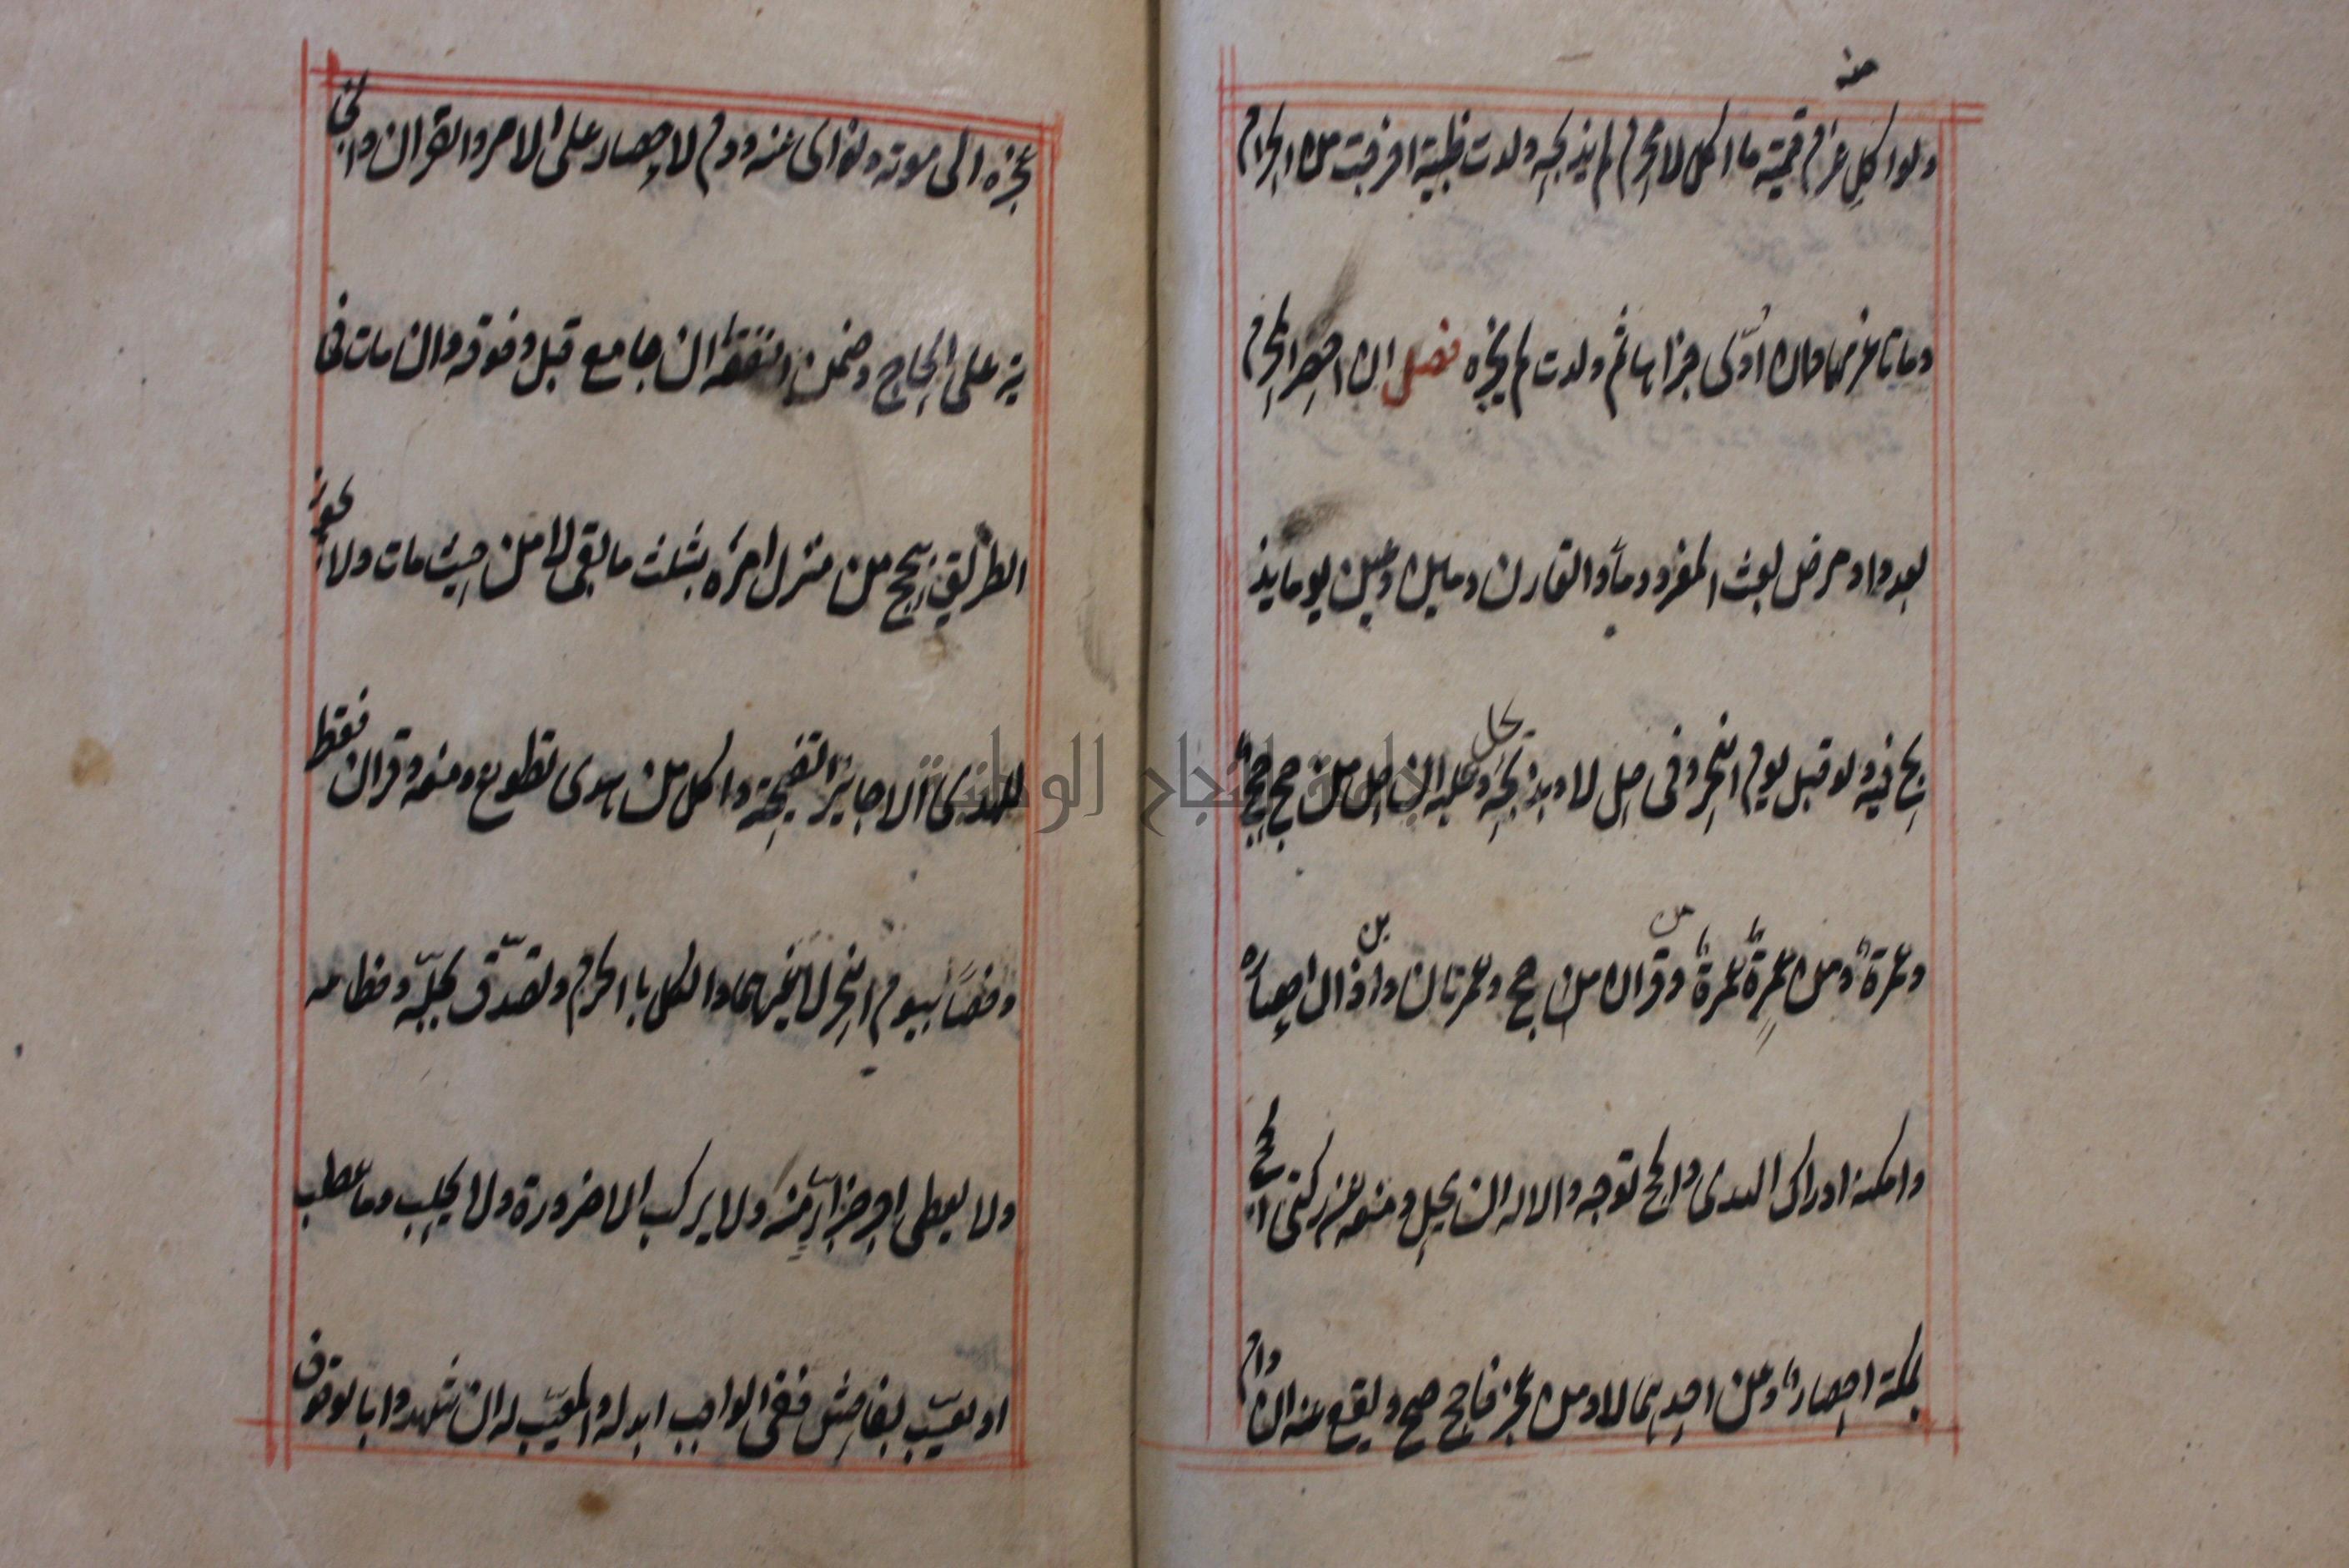 منه
ولو اكل غرم قيمة ما اكل لا محرم لم يذبحه ولدت ظبية اخرجت من الحرم
وماتا غرمهما وان ادّى جزاءها ثم ولدت لم يجزه فصل ان احصر المحرم
بعدو او مرض بعث المفرد دما والقارن دمين وعين يوما يذ
بح فيه ولو قبل يوم النحر وفى حل لا وبذبحه يحل وعليه ان حل من حج حج
وعمرة ومن عمرة عمرة ومن قران حج وعمرتان واذا زال احصاره
وامكنه ادراك الهدى والحج توجه والا له ان يحل ومنعه عن ركنى الحج
بمكة احصار ومن احدهما لا ومن عجز فاحج صح ويقع عنه ان دام
عجزه الى موته ونوى عنه ودم الاحصار على الآمر والقران والجنا
ية على الحاج وضمن النفقة ان جامع قبل وقوفه وان مات فى
الطريق يحج من منزل آمره بثلث ما بقى لا من حيث مات ولا يجوز
للهدى الا جائز التضحية واكل من هدى تطوع ومتعة وقران فقط
وخصا بيوم النحر لا غيرهما والكل بالحرم وتصدق بجله وخطامه
ولا يعطى اجر جزار منه ولا يركب الا ضرورة ولا يحلب وما عطب
او تعيب بفاحش ففى الواجب ابدله والمعيب له ان شهدوا بالوقوف
جامعة النجاح الوطنية